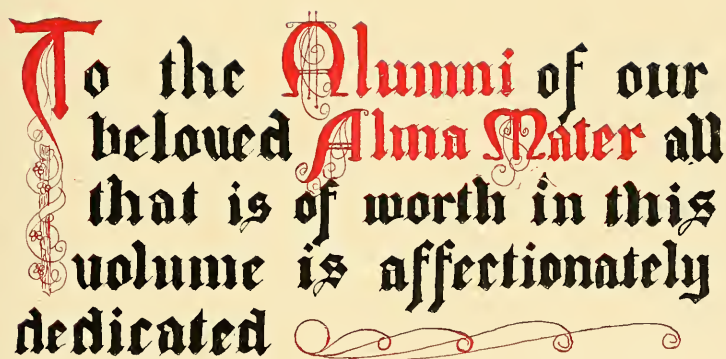 To the Alumni of our
beloved Alma Mater all
that is of worth in this
volume is affectionately
dedicated